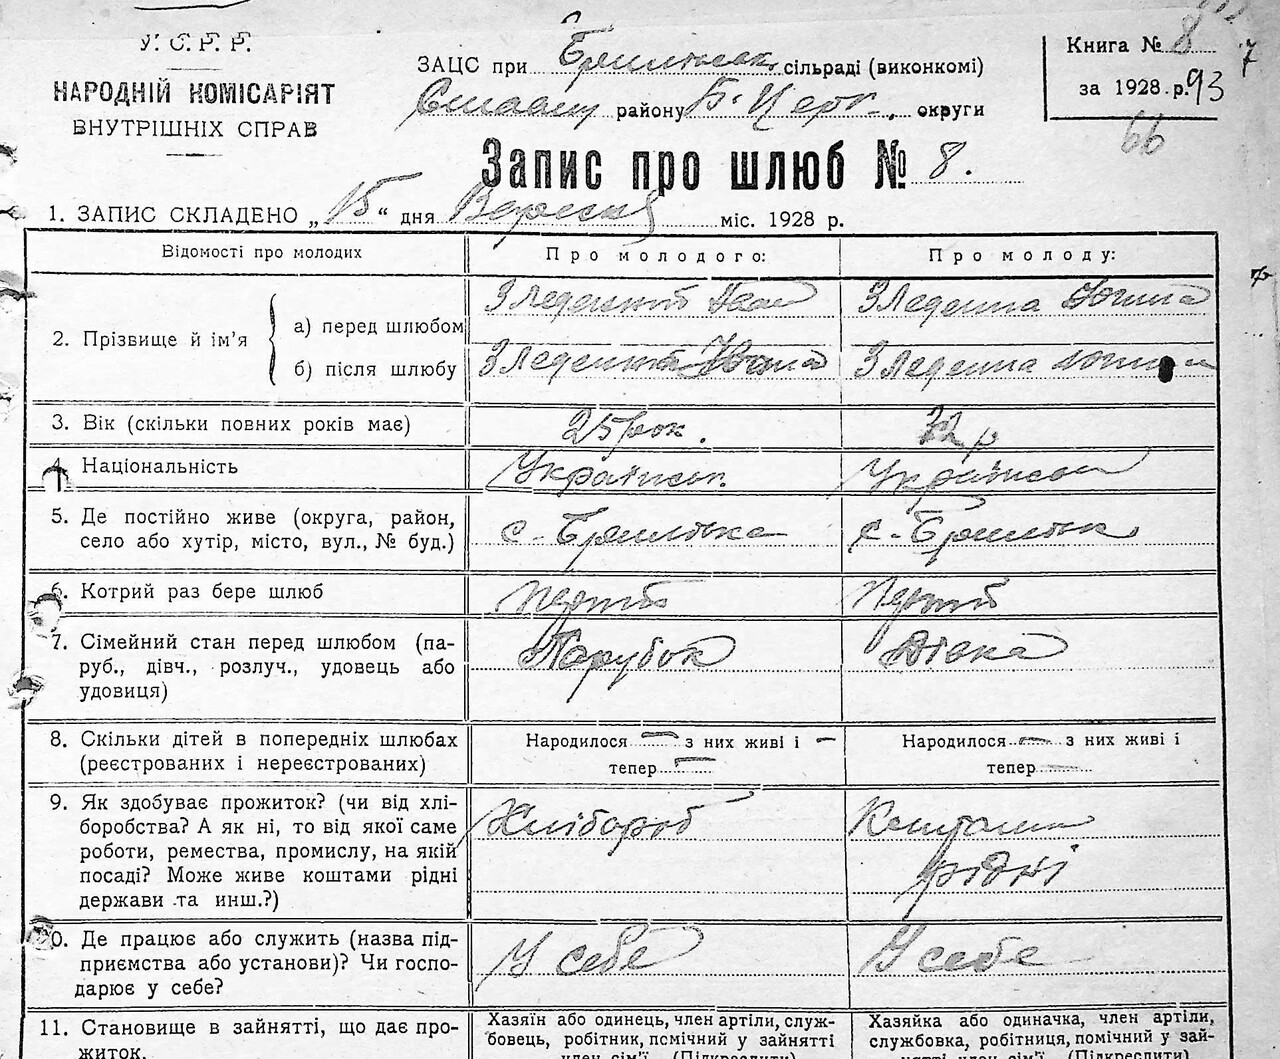 У. С. Р. Р.
НАРОДНІЙ КОМІСАРІЯТ
ВНУТРІШНІХ СПРАВ
ЗАЦС при сільраді (виконкомі)
району Б. Церк. округи
Книга № 8
за 1928 р. 93
7
66
Запис про шлюб № 8.
1. ЗАПИС СКЛАДЕНО „15“ дня Вересня міс. 1928 р.
Відомості про молодих
Про молодого:
Про молоду:
2. Прізвище й ім’я
а) перед шлюбом
б) після шлюбу
3. Вік (скільки повних років має)
25 рок.
р
4. Національність
Українськ.
Українськ
5. Де постійно живе (округа, район,
село або хутір, місто, вул., № буд.)
с.
с.
6. Котрий раз бере шлюб
перший
Перший
7. Сімейний стан перед шлюбом (па-
руб., дівч., розлуч., удовець або
удовиця)
Парубок
Дівка
8. Скільки дітей в попередніх шлюбах
(реєстрованих і нереєстрованих)
Народилося — з них живі і —
тепер —
Народилося — з них живі і
тепер
9. Як здобуває прожиток? (чи від хлі-
боробства? А як ні, то від якої саме
роботи, ремества, промислу, на якій
посаді? Може живе коштами рідні
держави та инш.?)
Хлібороб
Коштами
рідні
10. Де працює або служить (назва під-
приємства або установи)? Чи госпо-
дарює у себе?
У себе
У себе
11. Становище в зайнятті, що дає про-
житок.
Хазяїн або одинець, член артілі, служ-
бовець, робітник, псмічний у зайнятті
член сім’ї. (Підкреслити)
Хазяйка або одиначка, член артілі,
службовка, робітниця, псмічний у зай-
нятті член сім’ї. (Підкреслити)